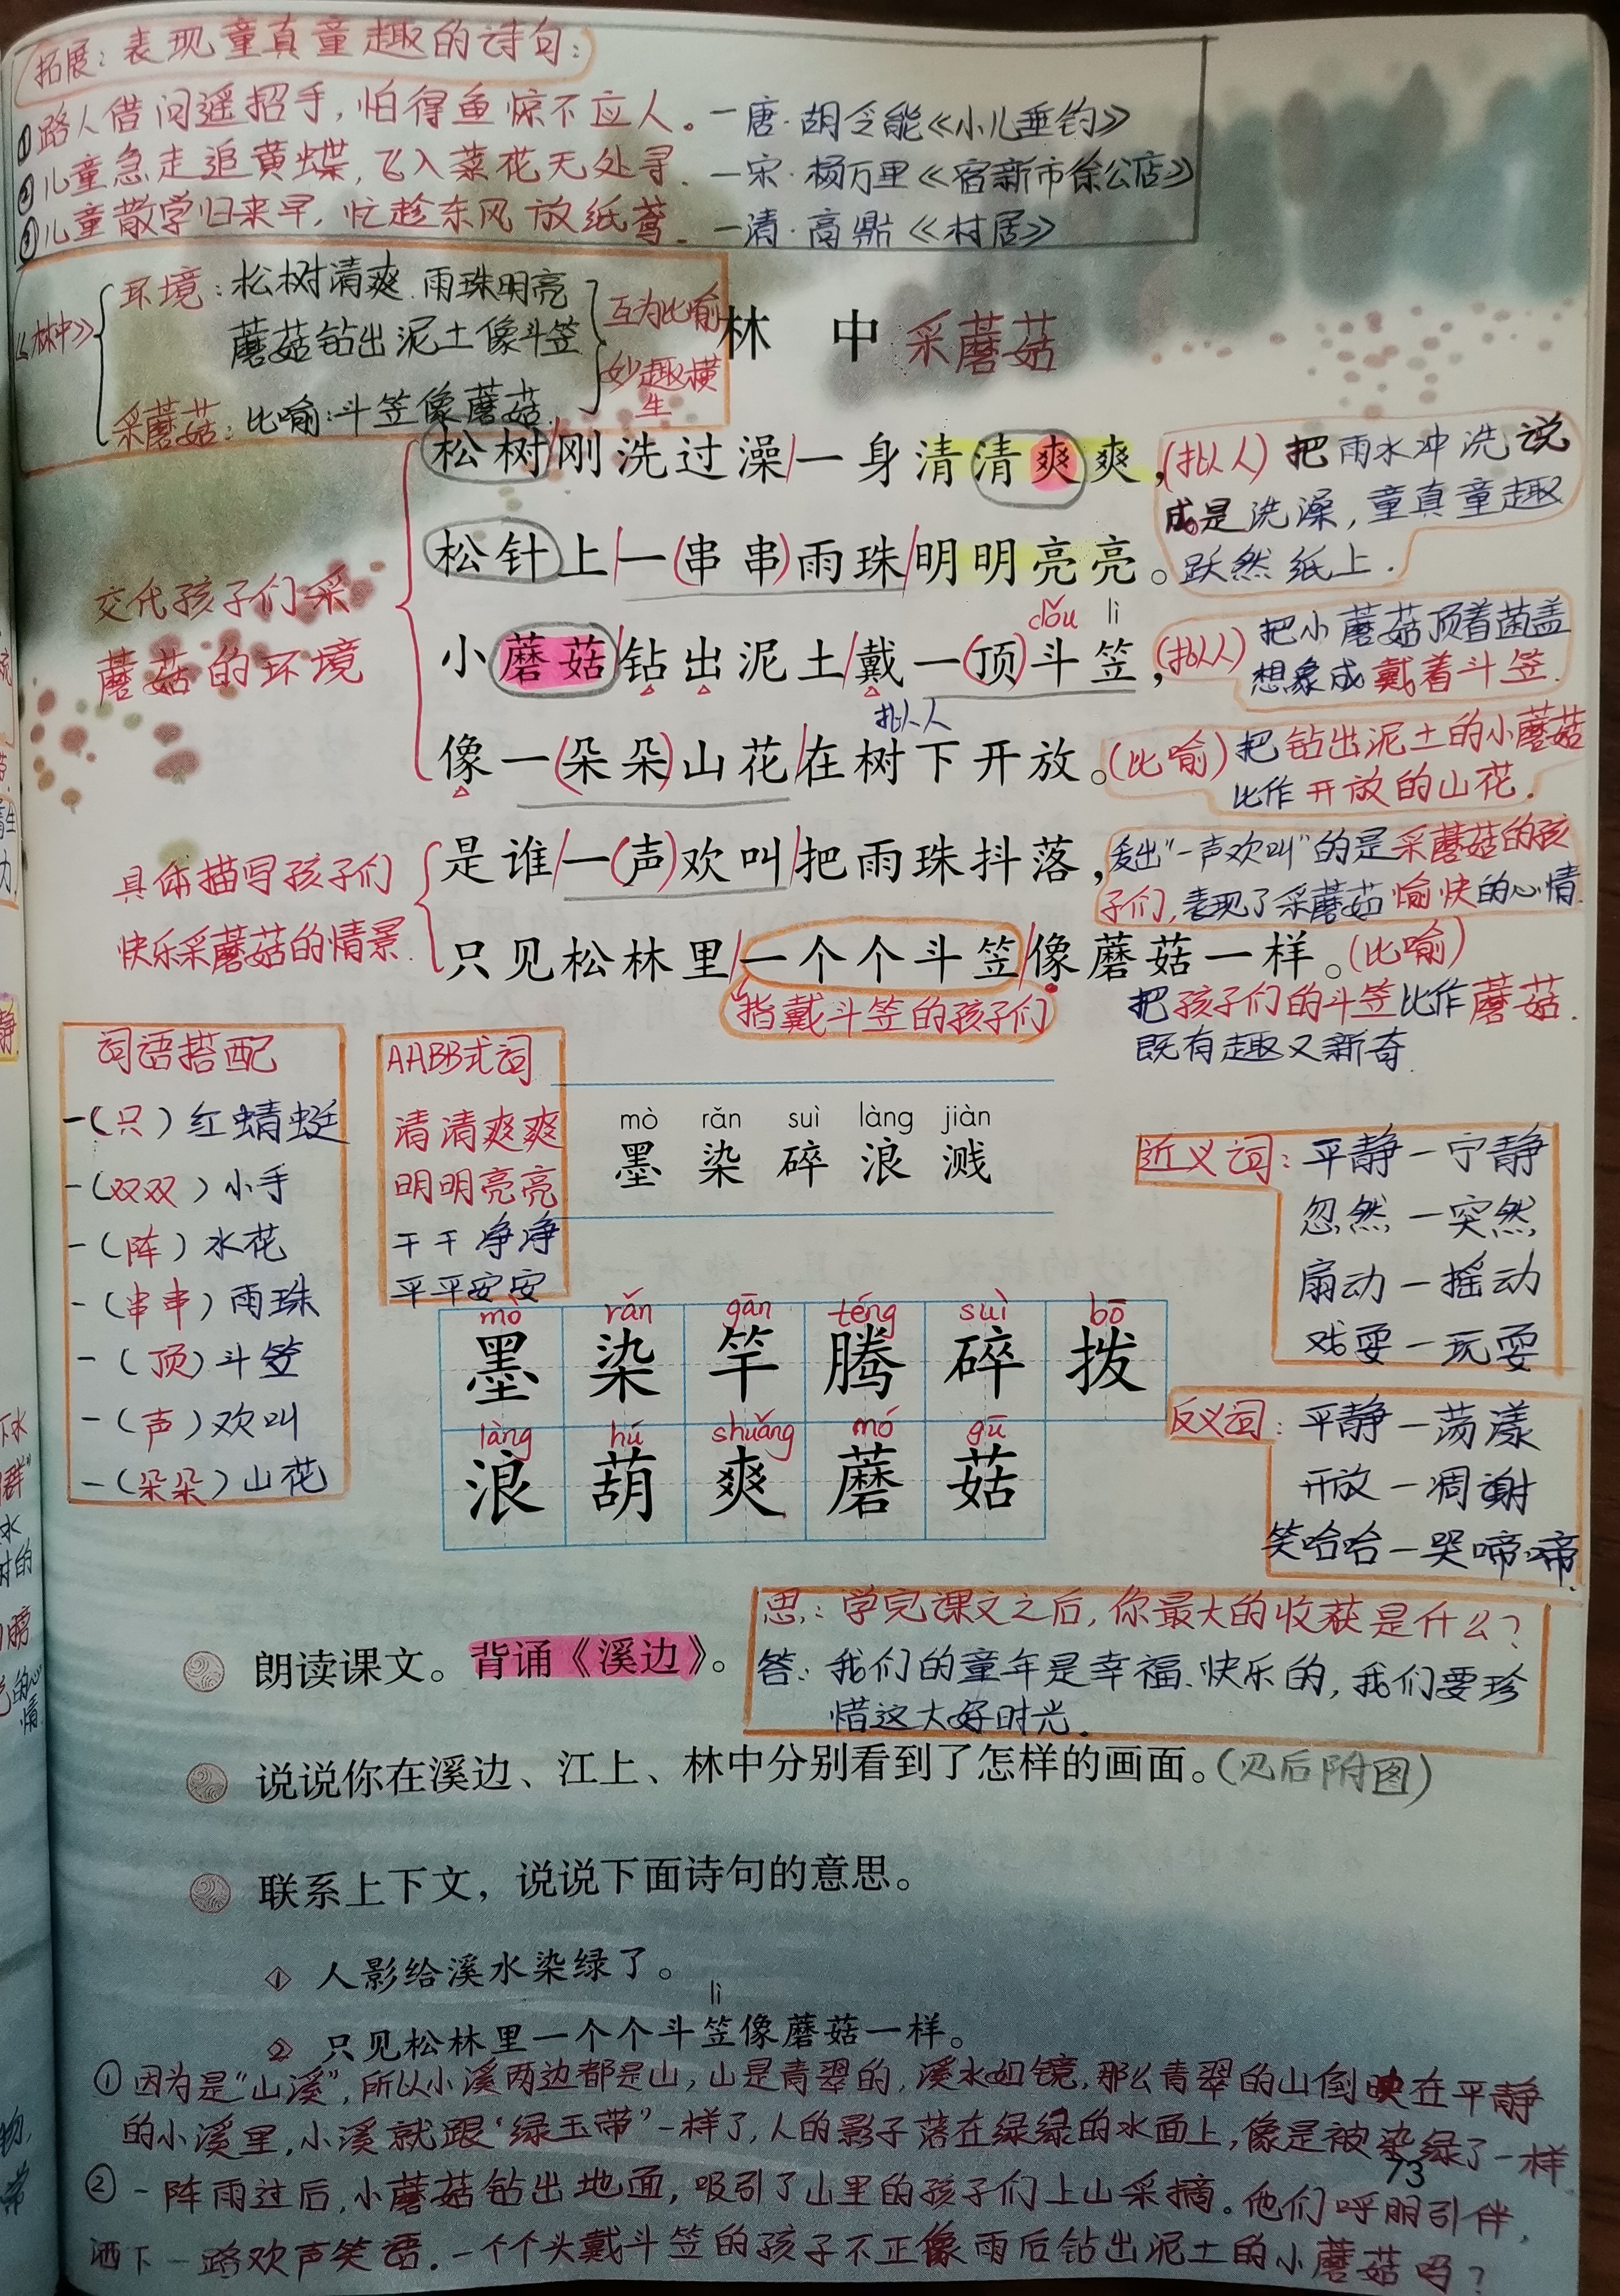 拓展：表现童真童趣的诗句：
①路人借问遥招手，怕得鱼惊不应人。—唐·胡令能《小儿垂钓》
②儿童急走追黄蝶，飞入菜花无处寻。—宋·杨万里《宿新市徐公店》
③儿童散学归来早，忙趁东风放纸鸢。—清·高鼎《村居》
《林中》
环境：松树清爽、雨珠明亮
蘑菇钻出泥土像斗笠
采蘑菇：比喻：斗笠像蘑菇
互为比喻
妙趣横生
林 中 采蘑菇
松树/刚洗过澡/一身清清爽爽，
(拟人)把雨水冲洗说
成是洗澡，童真童趣
跃然纸上.
松针上/一(串串)雨珠/明明亮亮。
dǒu lì
小蘑菇/钻出泥土/戴一(顶)斗笠，
拟人
(拟人)把小蘑菇顶着菌盖
想象成戴着斗笠.
像一(朵朵)山花/在树下开放。
(比喻)把钻出泥土的小蘑菇
比作开放的山花.
交代孩子们采
蘑菇的环境
是谁/一(声)欢叫/把雨珠抖落，
发出“一声欢叫”的是采蘑菇的孩
子们，表现了采蘑菇愉快的心情.
只见松林里/一个个斗笠/像蘑菇一样。
(比喻)
指戴斗笠的孩子们
把孩子们的斗笠比作蘑菇.
既有趣又新奇
具体描写孩子们
快乐采蘑菇的情景.
词语搭配
一(只)红蜻蜓
一(双双)小手
一(阵)水花
一(串串)雨珠
一(顶)斗笠
一(声)欢叫
一(朵朵)山花
AABB式词
清清爽爽
明明亮亮
干干净净
平平安安
mò rǎn suì làng jiàn
墨 染 碎 浪 溅
近义词：平静—宁静
忽然—突然
扇动—摇动
戏耍—玩耍
mò rǎn gān téng suì bō
墨 染 竿 腾 碎 拨
làng hú shuǎng mó gū
浪 葫 爽 蘑 菇
反义词：平静—荡漾
开放—凋谢
笑哈哈—哭啼啼.
思：学完课文之后，你最大的收获是什么？
答：我们的童年是幸福、快乐的，我们要珍
惜这大好时光.
朗读课文。背诵《溪边》。
说说你在溪边、江上、林中分别看到了怎样的画面。(见后附图)
联系上下文，说说下面诗句的意思。
1 人影给溪水染绿了。
lì
2 只见松林里一个个斗笠像蘑菇一样。
①因为是“山溪”，所以小溪两边都是山，山是青翠的，溪水如镜，那么青翠的山倒映在平静
的小溪里，小溪就跟“绿玉带”一样了，人的影子落在绿绿的水面上，像是被染绿了一样
73
②一阵雨过后，小蘑菇钻出地面，吸引了山里的孩子们上山采摘。他们呼朋引伴，
洒下一路欢声笑语.一个个头戴斗笠的孩子不正像雨后钻出泥土的小蘑菇吗？